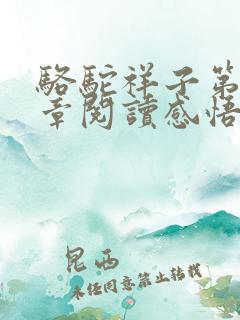 駱駝祥子第
章閱讀感悟
昆西
未经同意禁止转载